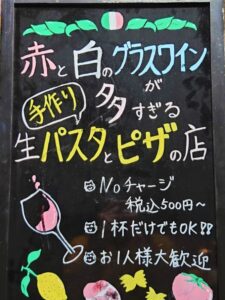 赤と白のグラスワイン
が
多
すぎる
手作り
生パスタとピザの店
Noチャージ
税込500円〜
1杯だけでもOK!!
お1人様大歓迎